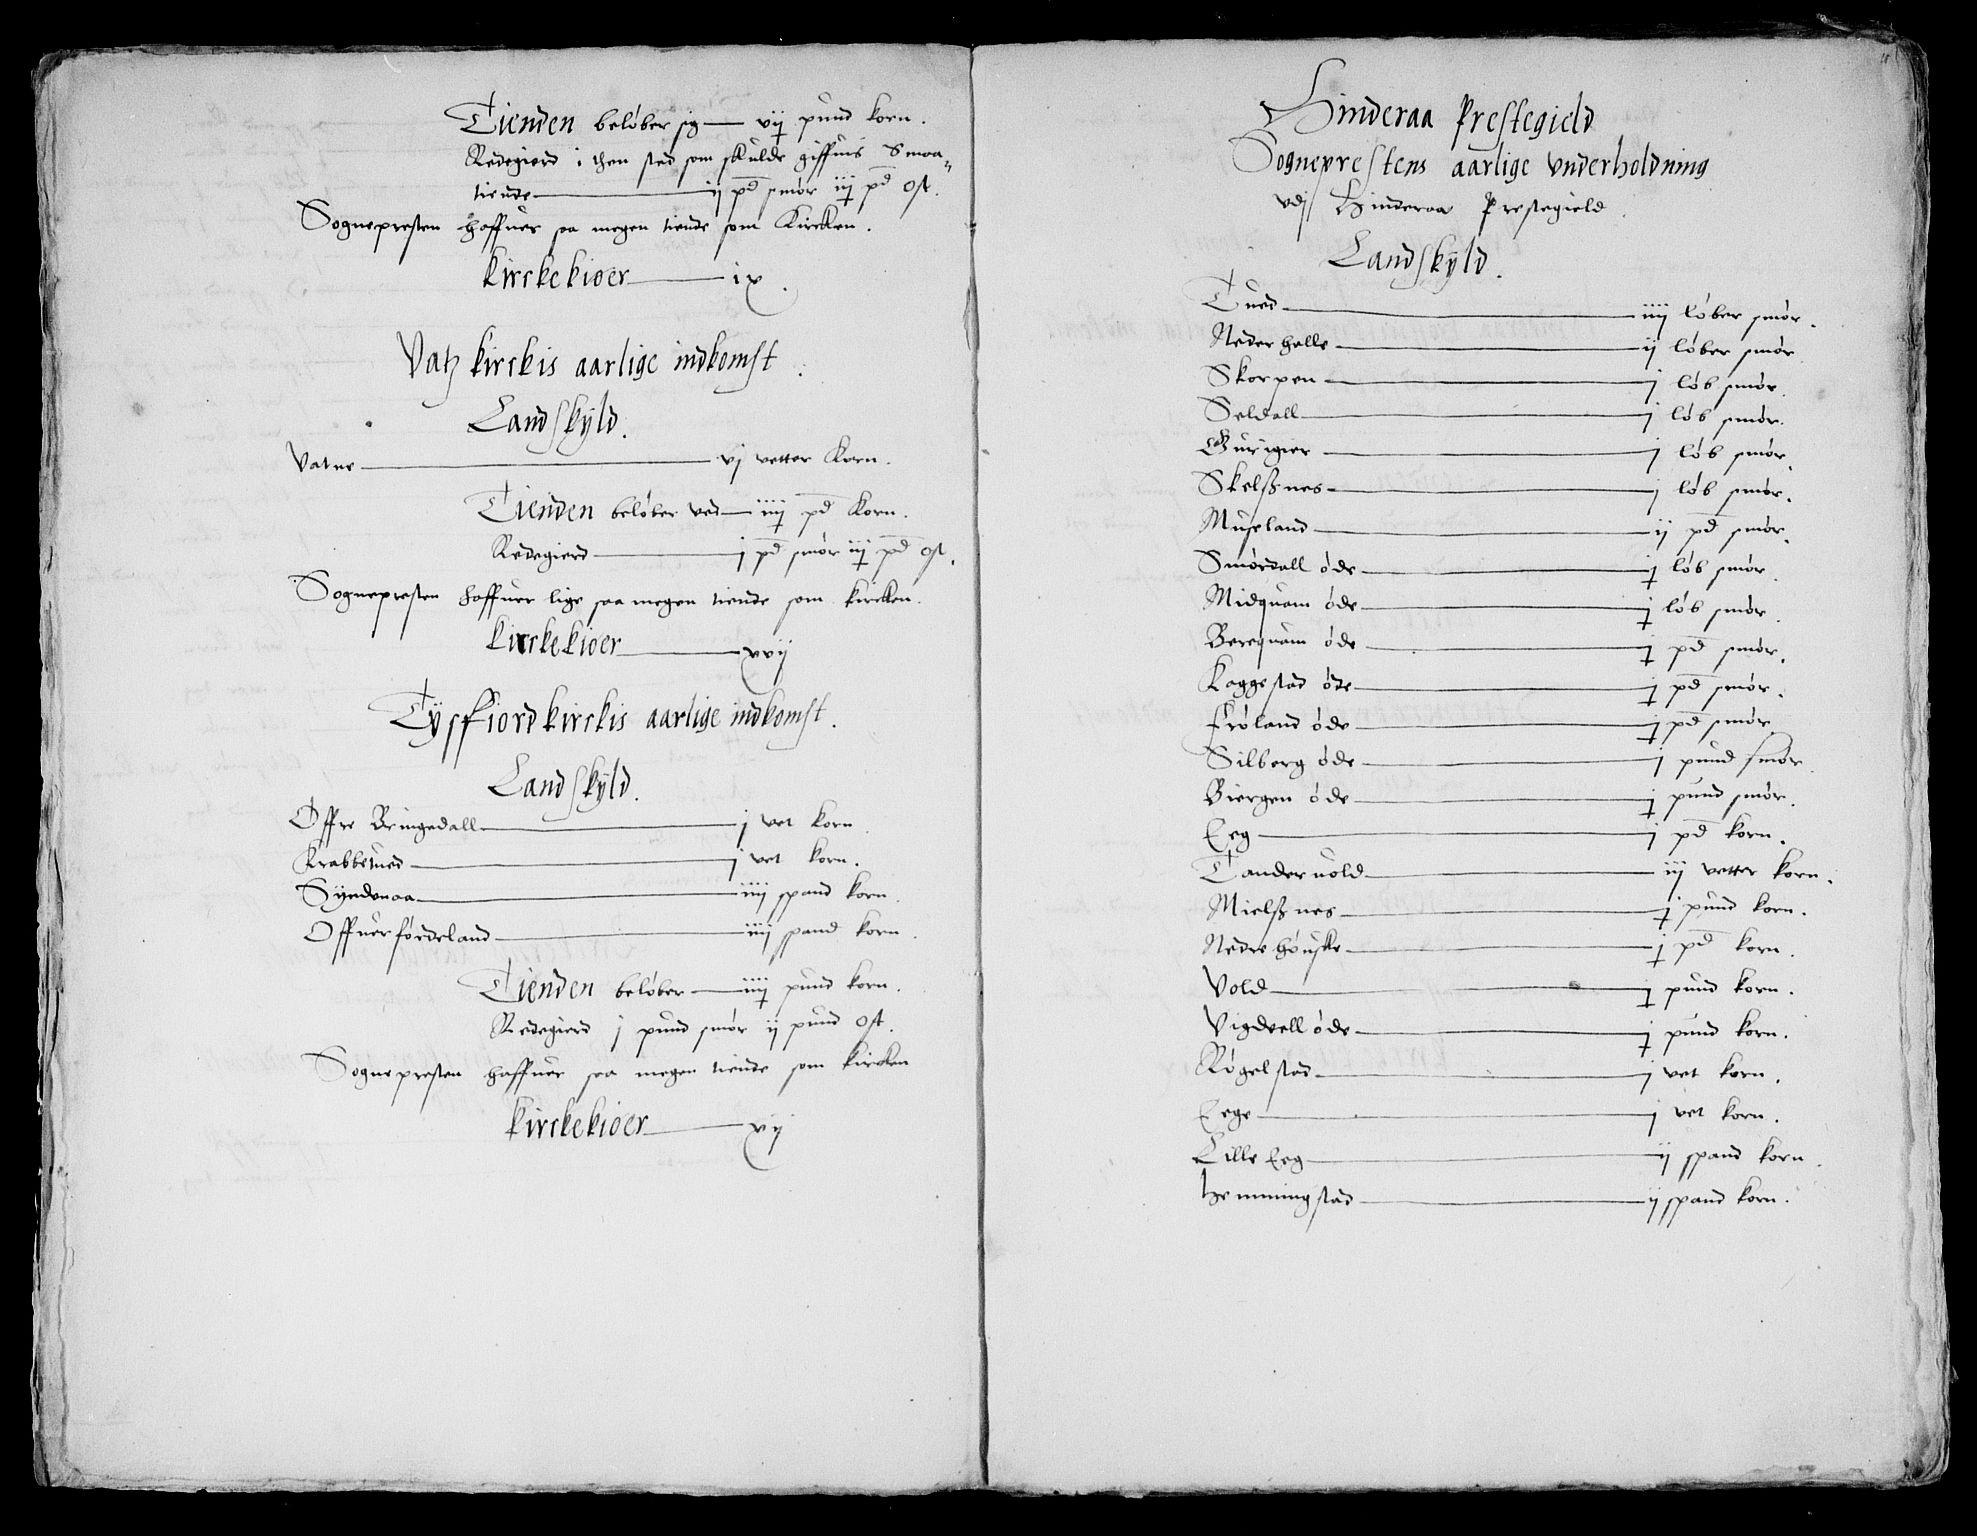 Tienden beløber sig — vij pund korn.
Redegierd i then sted som skulde giffuis Smaa-
tiende — ij pd smør iij pd ost.
Sognepresten haffuer saa megen tiende som Kircken.
Kirckekiøer — ix.
Vatz kirckis aarlige indkomst.
Landskyld.
Vatne — vj vetter Korn.
Tienden beløber ved — iiij pd Korn.
Redegierd — j pd smør iij pd ost.
Sognepresten haffuer lige saa megen tiende som kircken.
Kirckekiøer — xvij
Tysffiord kirckis aarlige indkomst.
Landskyld.
Øffre Bringedall — j vet korn.
Krabbetued — j vet korn.
Syndenaa — iiij spand korn.
Offuerførdeland — iiij spand korn.
Tienden beløber — iiij pund korn.
Redegierd j pund smør ij pund ost.
Sognepresten haffuer saa megen tiende som kircken
Kirckekiøer — xij
Hinderaa Prestegield
Sogneprestens aarlige vnderholdning
vdj Hinderaa Prestegield.
Landskyld.
Tued — iiij løber smør.
Nederhelle — ij løber smør.
Skorpen — j løb smør.
Seldall — j løb smør.
Gurigier — j løb smør.
Skelssnes — j løb smør.
Museland — ij pd smør.
Smørdall øde — j løb smør.
Midquam øde — j løb smør.
Berequam øde — j pd smør.
Kaggestad øde — j pd smør.
Frøland øde — j pd smør.
Silberg øde — j pund smør.
Biergen øde — j pund smør.
Eeg — j pd korn.
Tanderuold — iij vetter korn.
Mielssnes — j pund korn.
Nedre høuske — j pd korn.
Vold — j pund korn.
Vigdell øde — j pund korn.
Røgelstad — j vet korn.
Eege — j vet korn.
Lille Eeg — ij spand korn.
Hemmingstad — ij spand korn.